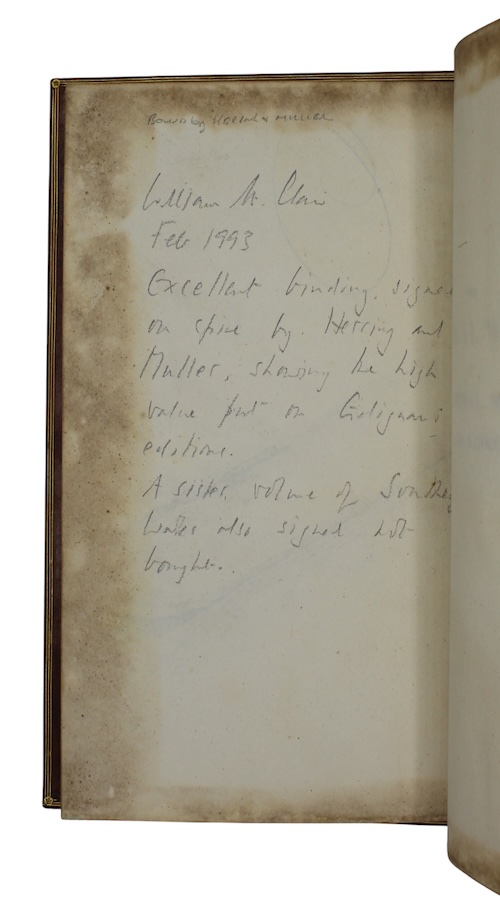 Bound by Herring & Muller
William St. Clair
Feb 1993
Excellent binding, signed
on spine by Herring and
Muller, showing the high
value put on Galignani
editions.
A sister volume of Southey
later also signed not
bought.